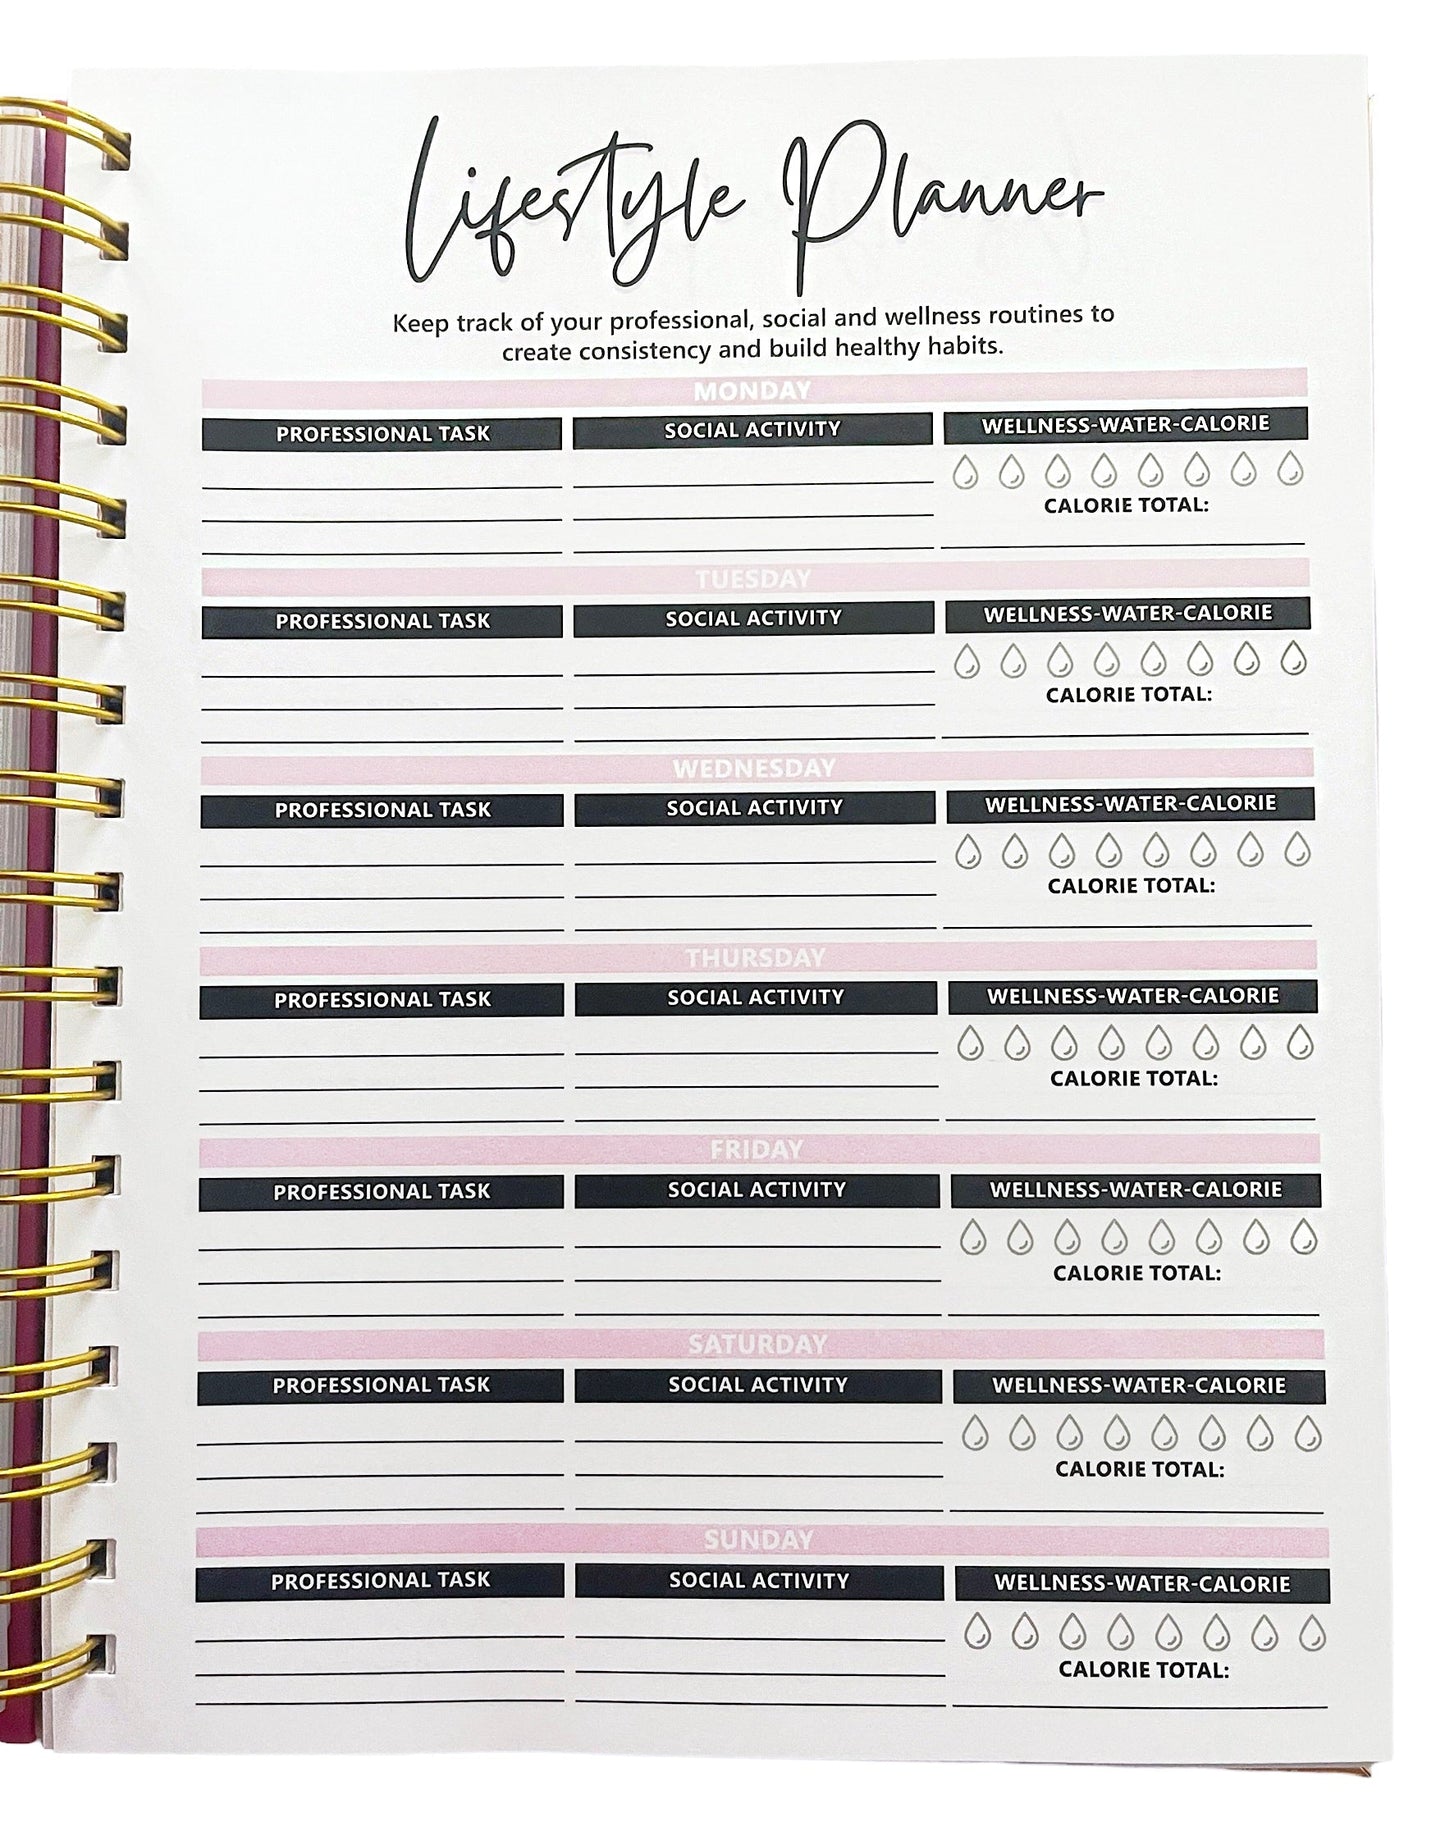 Lifestyle Planner
Keep track of your professional, social and wellness routines to
create consistency and build healthy habits.
MONDAY
PROFESSIONAL TASK SOCIAL ACTIVITY WELLNESS-WATER-CALORIE
CALORIE TOTAL:
TUESDAY
PROFESSIONAL TASK SOCIAL ACTIVITY WELLNESS-WATER-CALORIE
CALORIE TOTAL:
WEDNESDAY
PROFESSIONAL TASK SOCIAL ACTIVITY WELLNESS-WATER-CALORIE
CALORIE TOTAL:
THURSDAY
PROFESSIONAL TASK SOCIAL ACTIVITY WELLNESS-WATER-CALORIE
CALORIE TOTAL:
FRIDAY
PROFESSIONAL TASK SOCIAL ACTIVITY WELLNESS-WATER-CALORIE
CALORIE TOTAL:
SATURDAY
PROFESSIONAL TASK SOCIAL ACTIVITY WELLNESS-WATER-CALORIE
CALORIE TOTAL:
SUNDAY
PROFESSIONAL TASK SOCIAL ACTIVITY WELLNESS-WATER-CALORIE
CALORIE TOTAL: